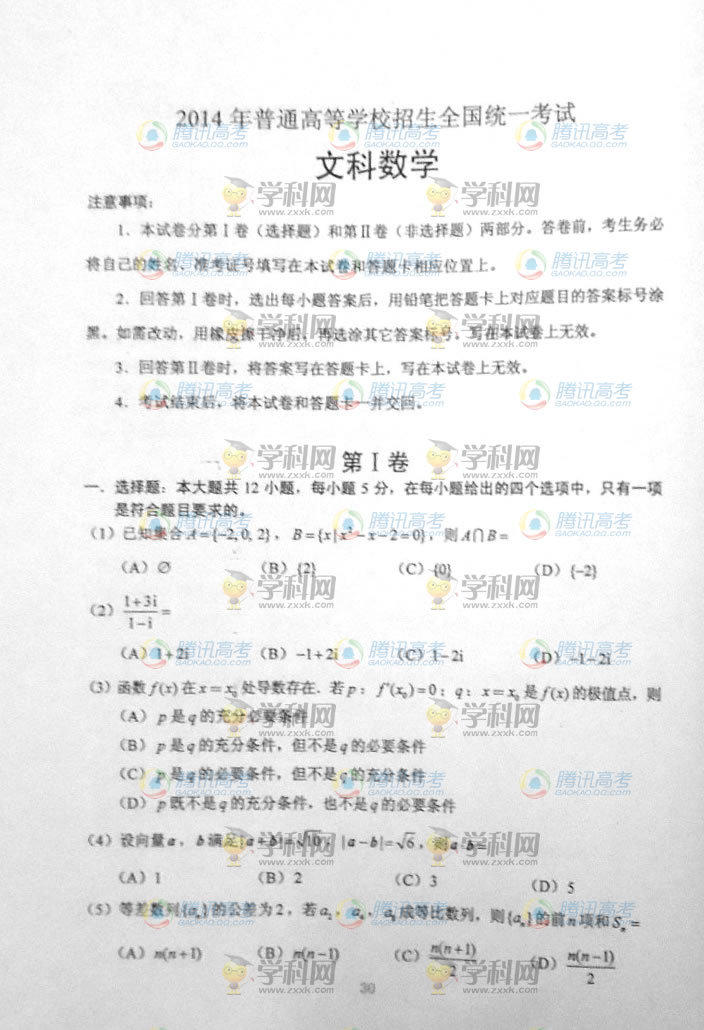 2014 年普通高等学校招生全国统一考试
文科数学
注意事项：
1．本试卷分第Ⅰ卷（选择题）和第Ⅱ卷（非选择题）两部分。答卷前，考生务必
将自己的姓名、准考证号填写在本试卷和答题卡相应位置上。
2．回答第Ⅰ卷时，选出每小题答案后，用铅笔把答题卡上对应题目的答案标号涂
黑。如需改动，用橡皮擦干净后，再选涂其它答案标号。写在本试卷上无效。
3．回答第Ⅱ卷时，将答案写在答题卡上，写在本试卷上无效。
4．考试结束后，将本试卷和答题卡一并交回。
第Ⅰ卷
一．选择题：本大题共 12 小题，每小题 5 分，在每小题给出的四个选项中，只有一项
是符合题目要求的。
（1）已知集合 A={-2, 0, 2}，B={x|x²-x-2=0}，则 A∩B=
（A）∅ （B）{2} （C）{0} （D）{-2}
（2）(1+3i)/(1-i)=
（A）1+2i （B）-1+2i （C）1-2i （D）-1-2i
（3）函数 f(x) 在 x=x₀ 处导数存在．若 p：f′(x₀)=0；q：x=x₀ 是 f(x) 的极值点，则
（A）p 是 q 的充分必要条件
（B）p 是 q 的充分条件，但不是 q 的必要条件
（C）p 是 q 的必要条件，但不是 q 的充分条件
（D）p 既不是 q 的充分条件，也不是 q 的必要条件
（4）设向量 a，b 满足 |a+b|=√10，|a-b|=√6，则 a·b=
（A）1 （B）2 （C）3 （D）5
（5）等差数列{aₙ}的公差为 2，若 a₂，a₄，a₈ 成等比数列，则{aₙ}的前 n 项和 Sₙ=
（A）n(n+1) （B）n(n-1) （C）n(n+1)/2 （D）n(n-1)/2
30
腾讯高考
GAOKAO.QQ.COM
学科网
www.zxxk.com